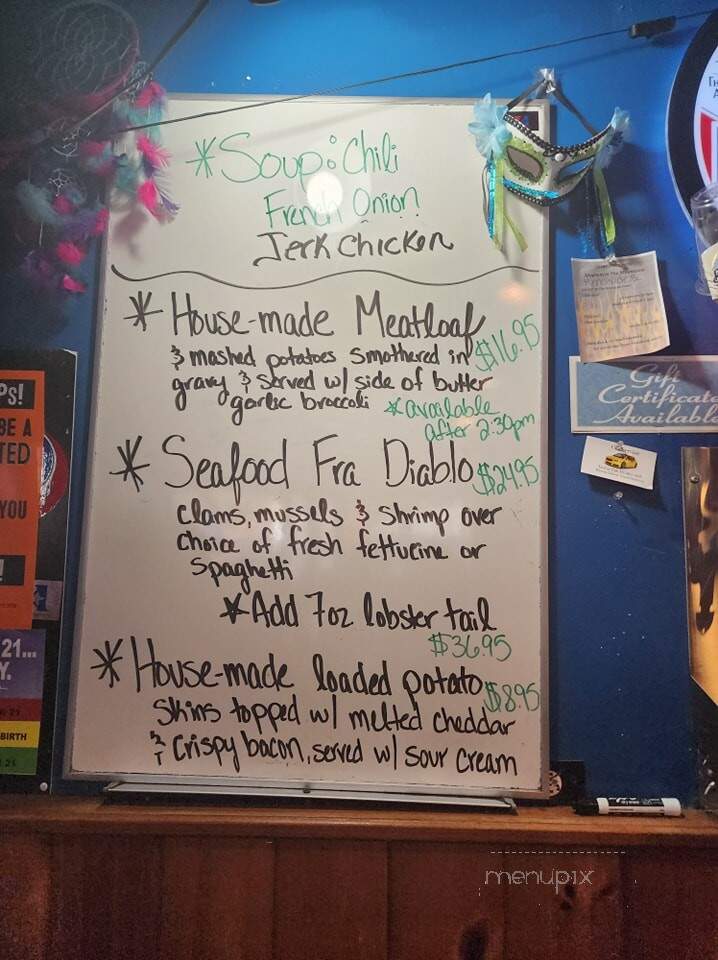 *Soup: Chili
French Onion
Jerk Chicken
* House-made Meatloaf
& mashed potatoes smothered in $16.95
gravy & served w/ side of butter
garlic broccoli * available
after 2:30pm
* Seafood Fra Diablo $24.95
Clams, mussels & shrimp over
choice of fresh fettucine or
spaghetti
* Add 7oz lobster tail
$36.95
* House-made loaded potato $8.95
skins topped w/ melted cheddar
& crispy bacon, served w/ sour cream
Gift
Certificate
Available
PS!
BE A
TED
YOU
!
21...
Y.
BIRTH
menupix